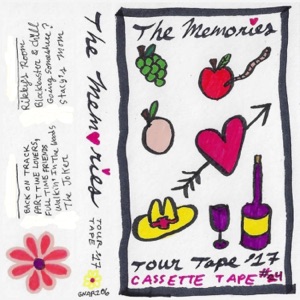 Rikky's Room
Blockbuster & Chill
Going Somewhere?
Stacy's Mom
BACK ON TRACK
PART TIME LOVERS,
FULL TIME FRIENDS
Walkin' In the Woods
The Joker
The Memories
TOUR '17
TAPE
GNAR106
The Memories
Tour Tape '17
CASSETTE TAPE #24